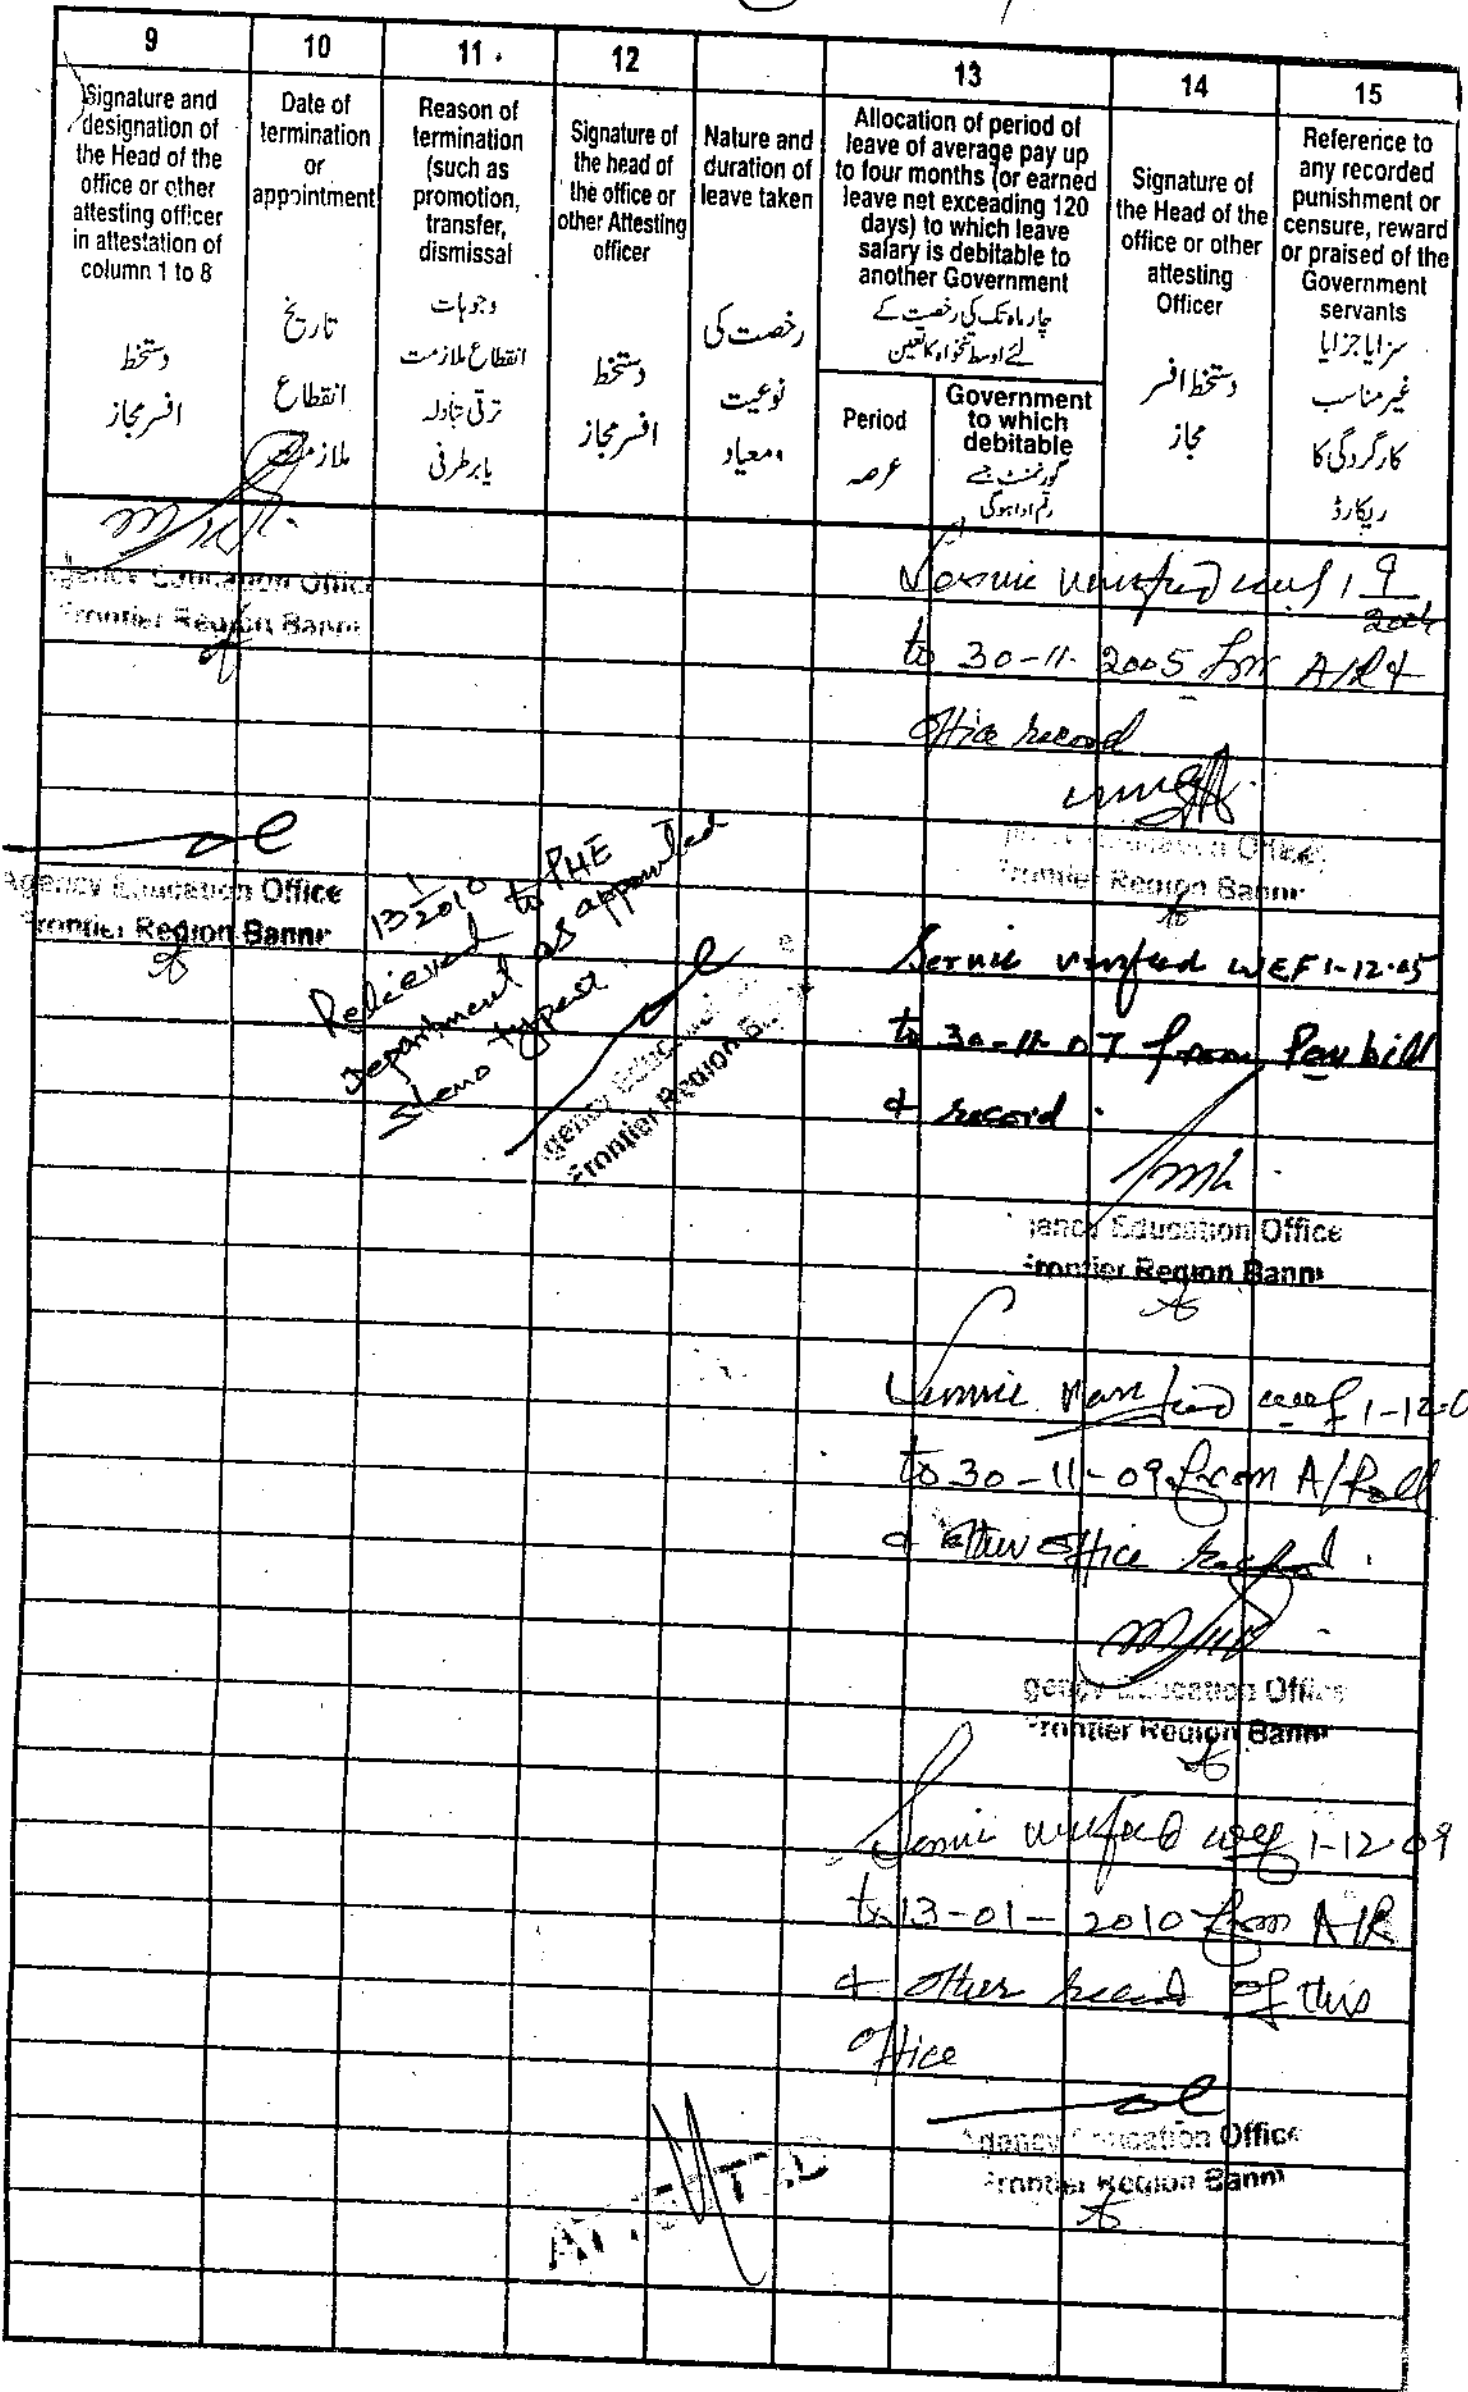 9
10
11 .
12
13
14
15
Signature and
designation of
the Head of the
office or other
attesting officer
in attestation of
column 1 to 8
دستخط
افسر مجاز
Date of
termination
or
appointment
تاریخ
انقطاع
ملازمت
Reason of
termination
(such as
promotion,
transfer,
dismissal
وجوہات
انقطاع ملازمت
ترقی تبادلہ
یا برطرفی
Signature of
the head of
the office or
other Attesting
officer
دستخط
افسر مجاز
Nature and
duration of
leave taken
رخصت کی
نوعیت
ومعیاد
Allocation of period of
leave of average pay up
to four months (or earned
leave net exceeding 120
days) to which leave
salary is debitable to
another Government
چار ماہ تک کی رخصت کے
لئے اوسط تنخواہ کا تعین
Period
عرصہ
Government
to which
debitable
گورنمنٹ جسے
رقم ادا ہوگی
Signature of
the Head of the
office or other
attesting
Officer
دستخط افسر
مجاز
Reference to
any recorded
punishment or
censure, reward
or praised of the
Government
servants
سزا یا جزا یا
غیر مناسب
کارگردگی کا
ریکارڈ
Agency Education Office
Frontier Region Bannu
Agency Education Office
Frontier Region Bannu
13 1/2010
Relieved to PHE
Department as appointed
steno typest
gency Educ
Frontier Region B
Service verified wef 1 9/2004
to 30-11-2005 from A/R &
office record
Education Office
Frontier Region Bannu
Service verified WEF 1-12-05
to 30-11-07 from Pay bill
& record.
gency Education Office
Frontier Region Bannu
Service verified wef 1-12-0
to 30-11-09 from A/Roll
& other office record.
gency Education Office
Frontier Region Bannu
Service verified wef 1-12-09
to 13-01-2010 from A/R
& other record of this
office
Agency Education Office
Frontier Region Bannu
ATTESTED